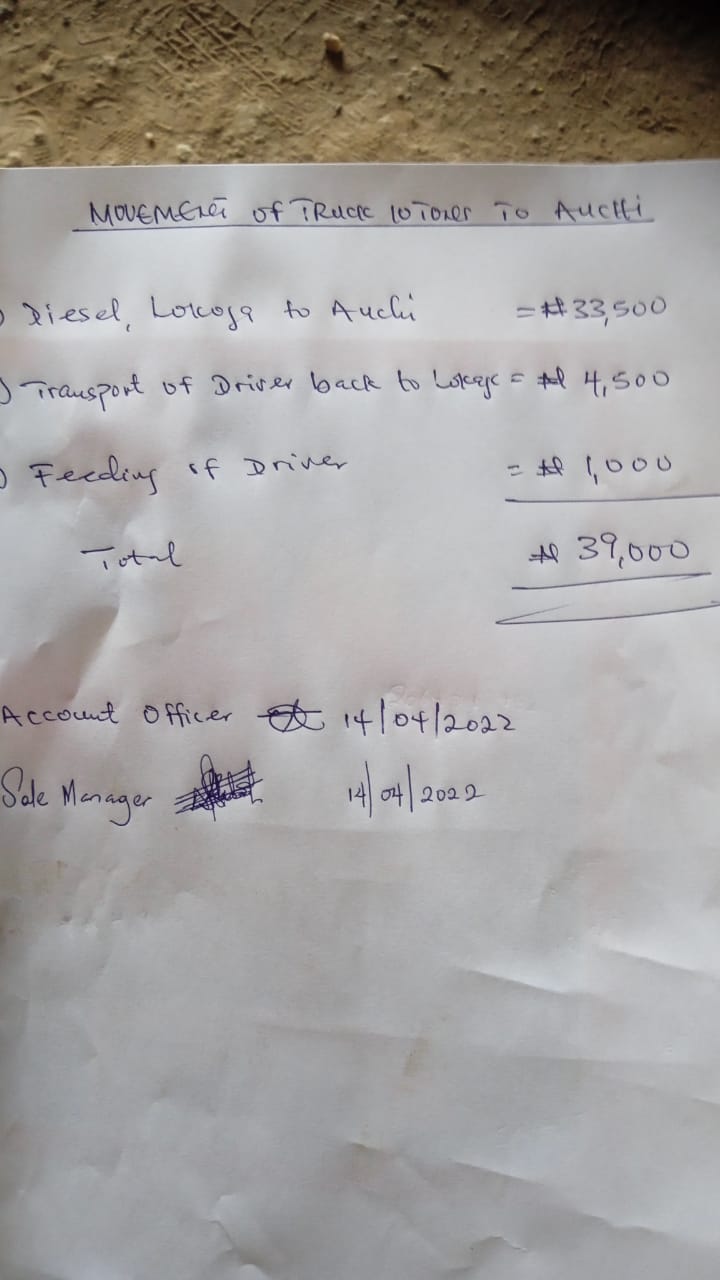 MOVEMENT of TRUCK 10 TONES TO AUCHI
) Diesel, Lokoja to Auchi = ₦33,500
) Transport of Driver back to Lokoja = ₦ 4,500
) Feeding of Driver = ₦ 1,000
Total ₦ 39,000
Account Officer 14/04/2022
Sale Manager 14/04/2022